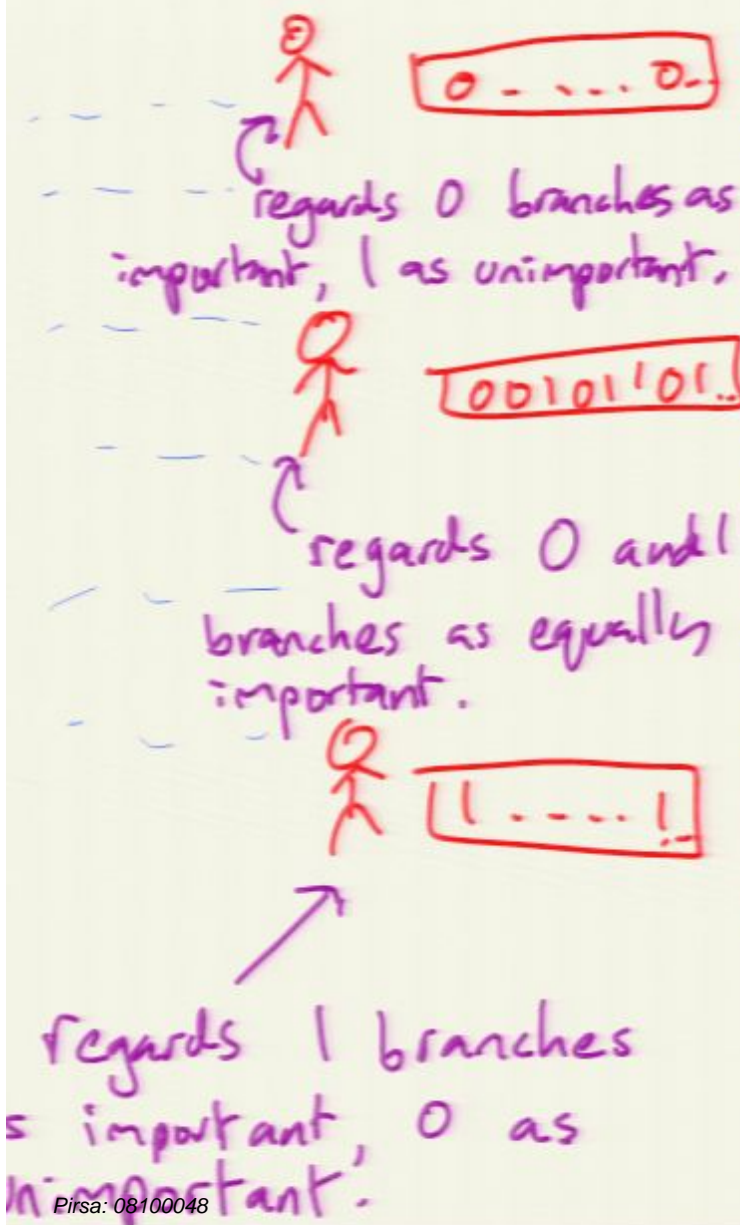 0 - . ... 0..
regards 0 branches as
important, 1 as unimportant.
00101101..
regards 0 and 1
branches as equally
important.
11 . - - . 1..
regards 1 branches
s important, 0 as
nimportant.
Pirsa: 08100048